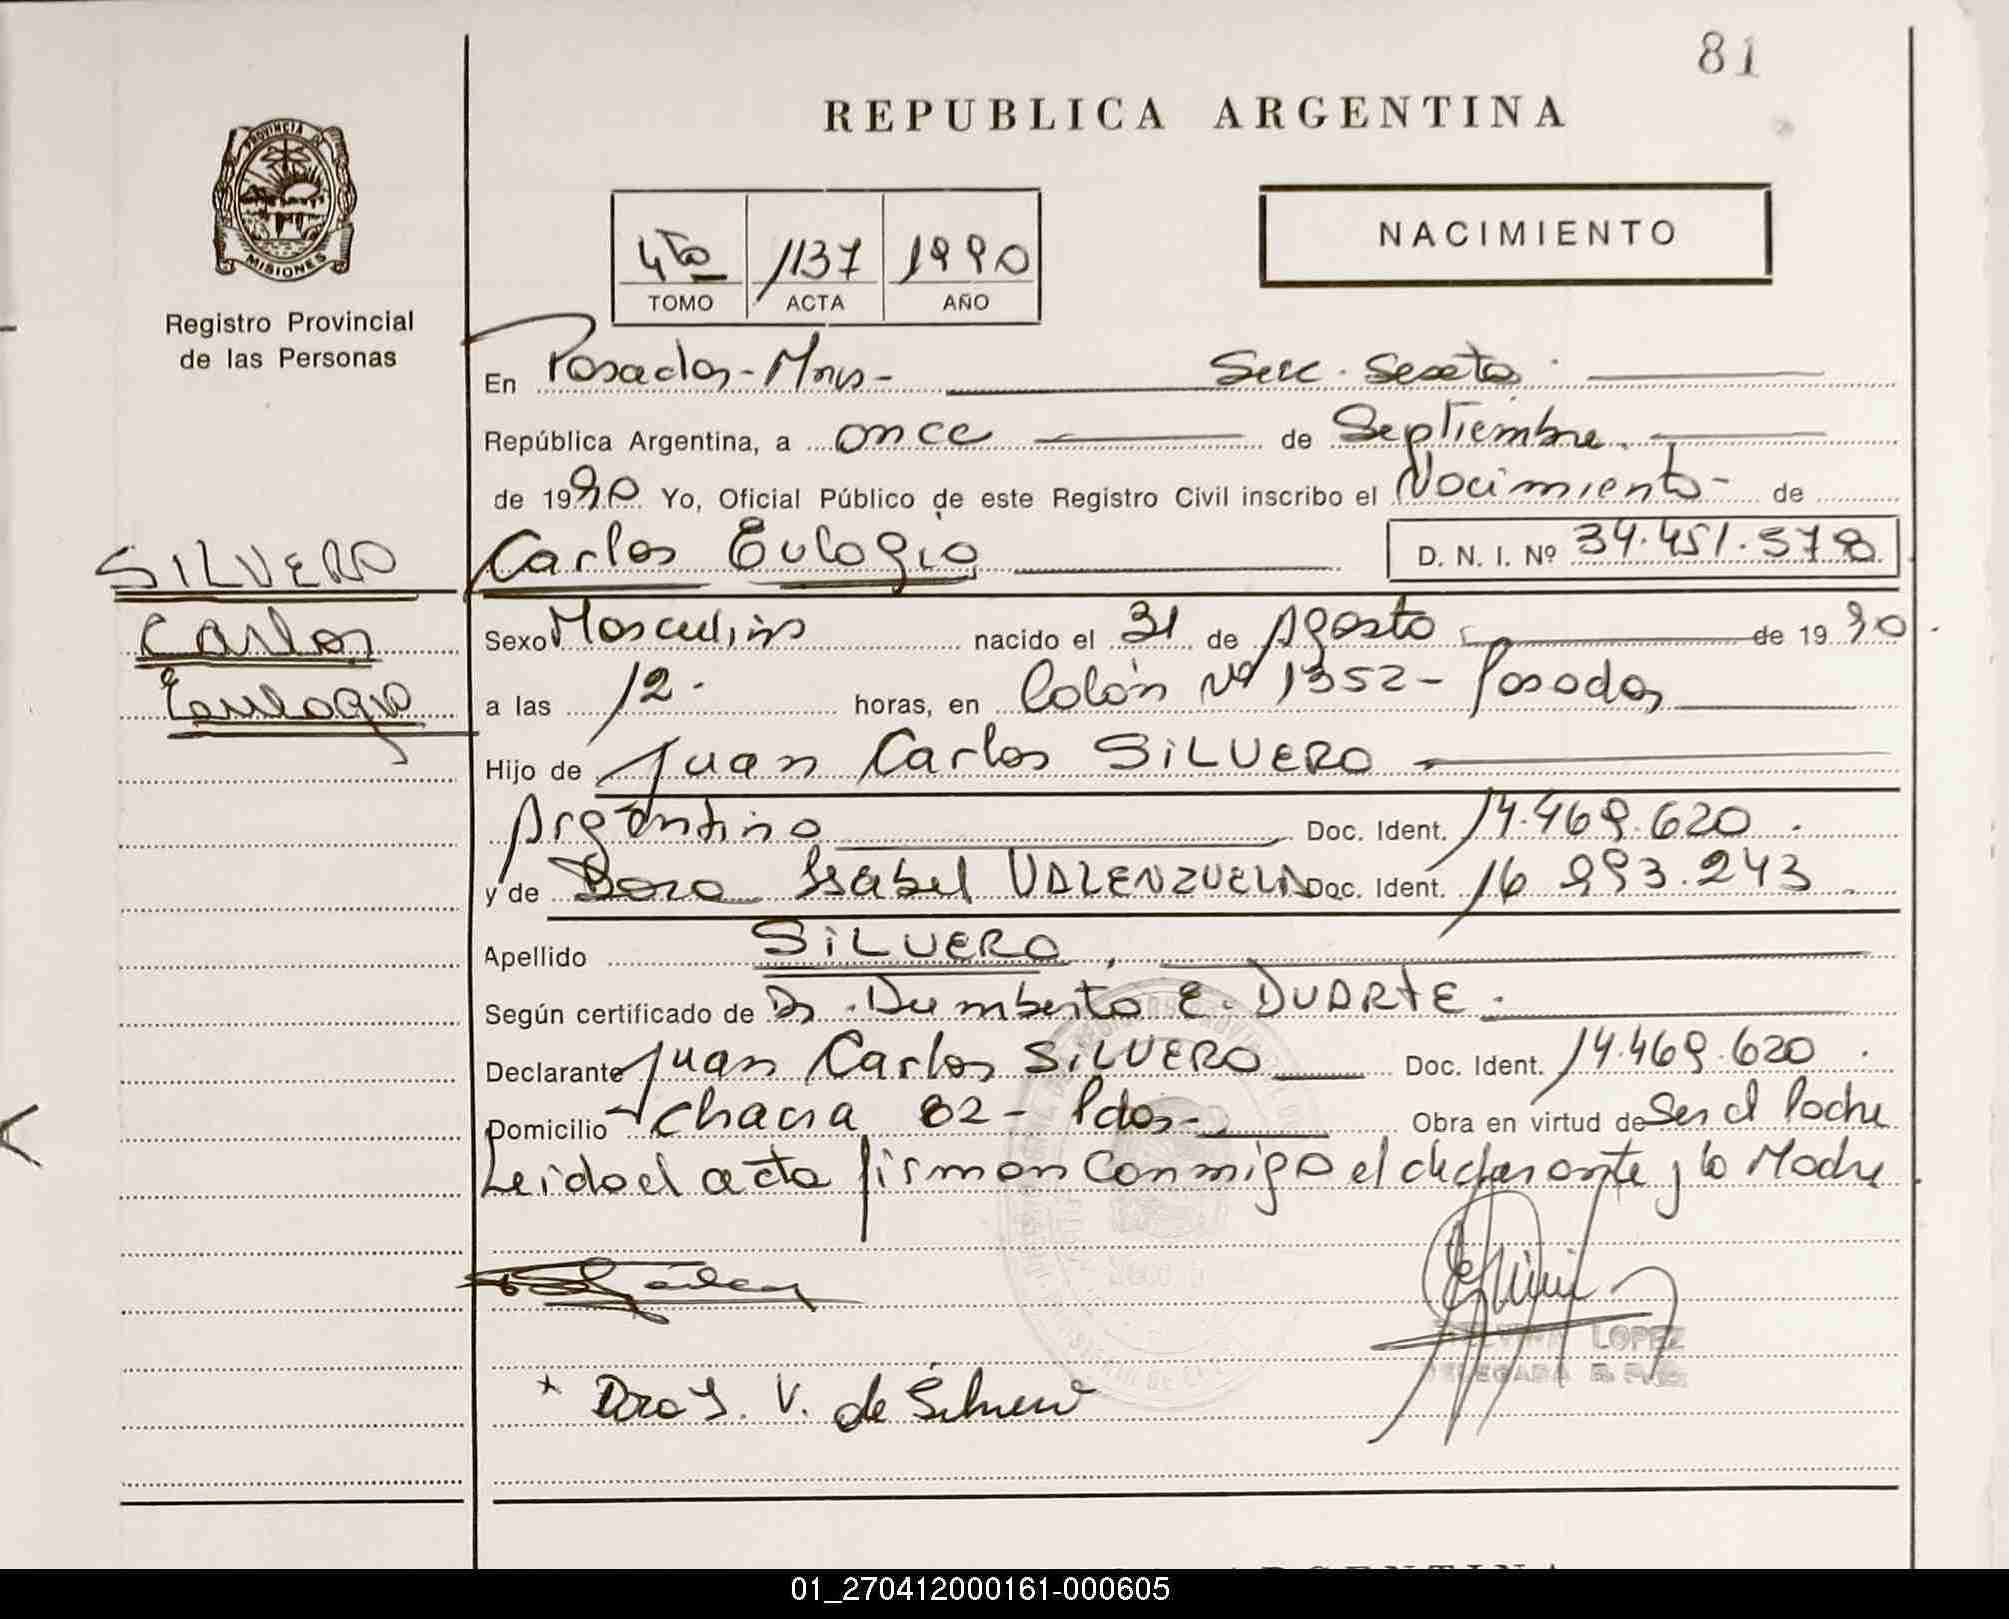 81
REPUBLICA ARGENTINA
PROVINCIA DE
MISIONES
Registro Provincial
de las Personas
4to 1137 1990
TOMO ACTA AÑO
NACIMIENTO
En Posadas - Mnes - Secc. Sexta
República Argentina, a once de Septiembre
de 1990 Yo, Oficial Público de este Registro Civil inscribo el Nacimiento - de
SILVERO
Carlos
Eulogio
Carlos Eulogio D. N. I. Nº 34.451.578
Sexo Masculino nacido el 31 de Agosto de 1990
a las 12. horas, en Colón Nº 1352 - Posadas
Hijo de Juan Carlos SILVERO
Argentino Doc. Ident. 14.469.620.
y de Dora Isabel VALENZUELA Doc. Ident. 16 993.243
Apellido SILVERO
Según certificado de Dr. Dumberto E. DUARTE.
Declarante Juan Carlos SILVERO Doc. Ident. 14.469.620.
Domicilio Chacra 82 - Pdas - Obra en virtud de Ser el Padre
Leida el acta firman conmigo el declarante y la Madre
LOPEZ
DELEGADA
+ Dora I. V. de Silvero
ARGENTINA
01_270412000161-000605